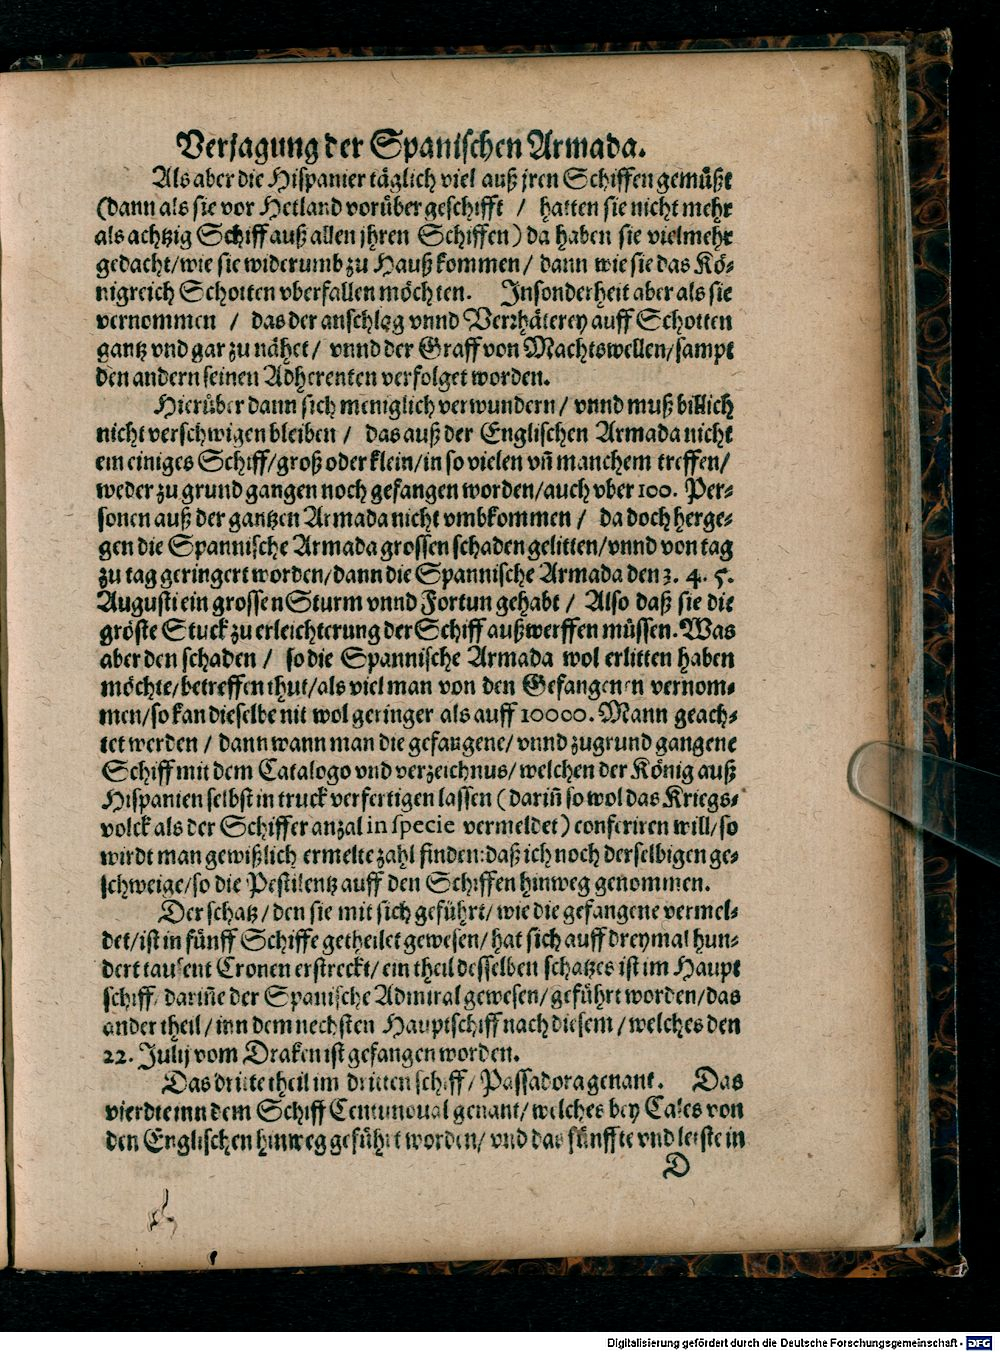 Verjagung der Spanischen Armada.
Als aber die Hispanier täglich viel auß jren Schiffen gemüßt
(dann als sie vor Hetland vorüber geschifft / hatten sie nicht mehr
als achtzig Schiff auß allen jhren Schiffen) da haben sie vielmehr
gedacht/wie sie widerumb zu Hauß kommen/ dann wie sie das Kö-
nigreich Schotten vberfallen möchten. Insonderheit aber als sie
vernommen / das der anschlag vnnd Verrhäterey auff Schotten
gantz vnd gar zu nähet/ vnnd der Graff von Machtswellen/sampt
den andern seinen Adherenten verfolget worden.
Hierüber dann sich meniglich verwundern/ vnnd muß billich
nicht verschwigen bleiben / das auß der Englischen Armada nicht
ein einiges Schiff/groß oder klein/in so vielen vñ manchem treffen/
weder zu grund gangen noch gefangen worden/auch vber 100. Per-
sonen auß der gantzen Armada nicht vmbkommen / da doch herge-
gen die Spannische Armada grossen schaden gelitten/vnnd von tag
zu tag geringert worden/dann die Spannische Armada den 3. 4. 5.
Augusti ein grossen Sturm vnnd Fortun gehabt / Also daß sie die
gröste Stuck zu erleichterung der Schiff außwerffen müssen. Was
aber den schaden / so die Spannische Armada wol erlitten haben
möchte/betreffen thut/als viel man von den Gefangenen vernom-
men/so kan dieselbe nit wol geringer als auff 10000. Mann geach-
tet werden / dann wann man die gefangene/ vnnd zugrund gangene
Schiff mit dem Catalogo vnd verzeichnus/ welchen der König auß
Hispanien selbst in truck verfertigen lassen (dariñ so wol das Kriegs-
volck als der Schiffer anzal in specie vermeldet) conferiren will/so
wirdt man gewißlich ermelte zahl finden: daß ich noch derselbigen ge-
schweige/so die Pestilentz auff den Schiffen hinweg genommen.
Der schatz/ den sie mit sich geführt/ wie die gefangene vermel-
det/ist in fünff Schiffe getheilet gewesen/ hat sich auff dreymal hun-
dert tausent Cronen erstreckt/ ein theil desselben schatzes ist im Haupt
schiff/ dariñe der Spanische Admiral gewesen/geführt worden/das
ander theil/inn dem nechsten Hauptschiff nach diesem/welches den
22. Julij vom Draken ist gefangen worden.
Das dritte theil im dritten schiff/ Passadora genant. Das
vierdte inn dem Schiff genant/ welches bey Cales von
den Englischen hinweg geführt worden/ vnd das fünffte vnd letste in
D
Digitalisierung gefördert durch die Deutsche Forschungsgemeinschaft - DFG